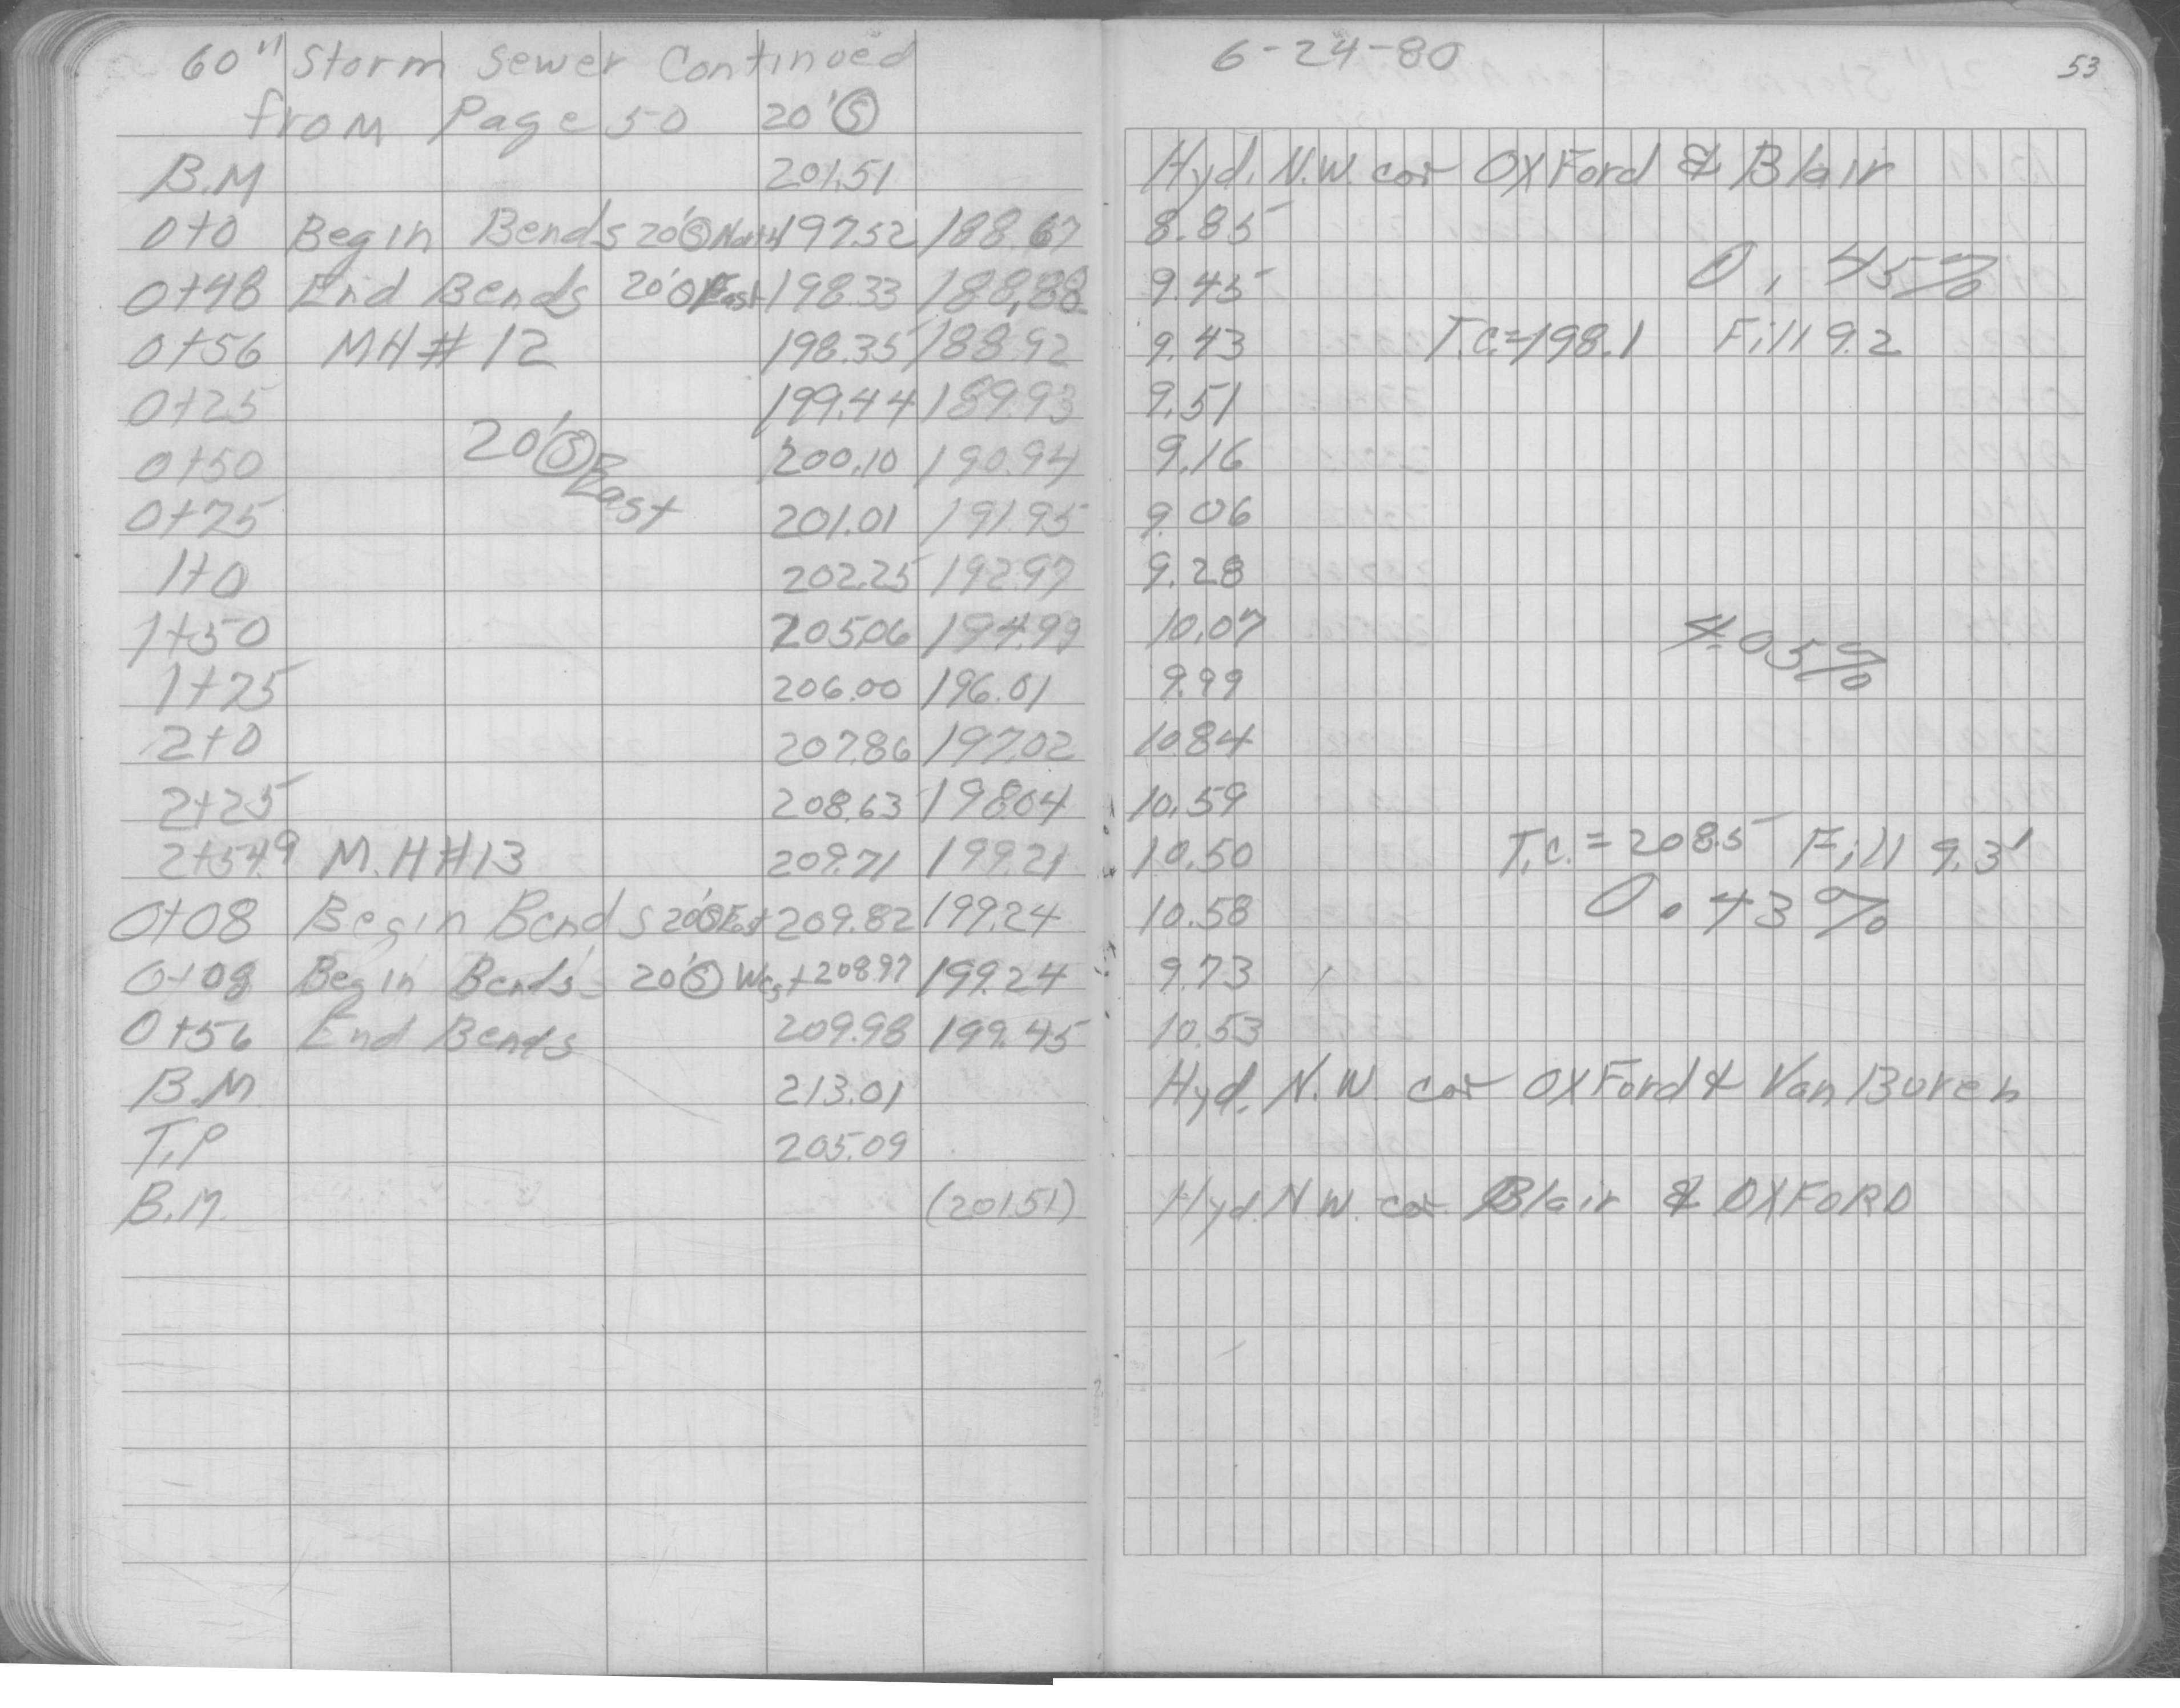 60" Storm Sewer Continued
from Page 50 20' Ⓢ
B.M 201.51
0+0 Begin Bends 20' Ⓢ North 197.52 188.67
0+48 End Bends 20' Ⓢ East 198.33 188.88
0+56 MH # 12 198.35 188.92
0+25 199.44 189.93
0+50 20' Ⓢ East 200.10 190.94
0+75 201.01 191.95
1+0 202.25 192.97
1+50 205.06 194.99
1+75 206.00 196.01
2+0 207.86 197.02
2+25 208.63 198.04
2+54.9 M.H #13 209.71 199.21
0+08 Begin Bends 20' Ⓢ East 209.82 199.24
0+08 Begin Bends 20' Ⓢ West 208.97 199.24
0+56 End Bends 209.98 199.45
B.M 213.01
T.P 205.09
B.M. (201.51)
6-24-80
53
Hyd. N.W. cor OXFord & Blair
8.85
9.45 0.45%
9.43 T.C.=198.1 Fill 9.2
9.51
9.16
9.06
9.28
10.07 4.05%
9.99
10.84
10.59
10.50 T.C.=208.5 Fill 9.3'
10.58 0.43%
9.73
10.53
Hyd. N.W. cor OXFord & Van Buren
Hyd. N.W. cor. Blair & OXFORD